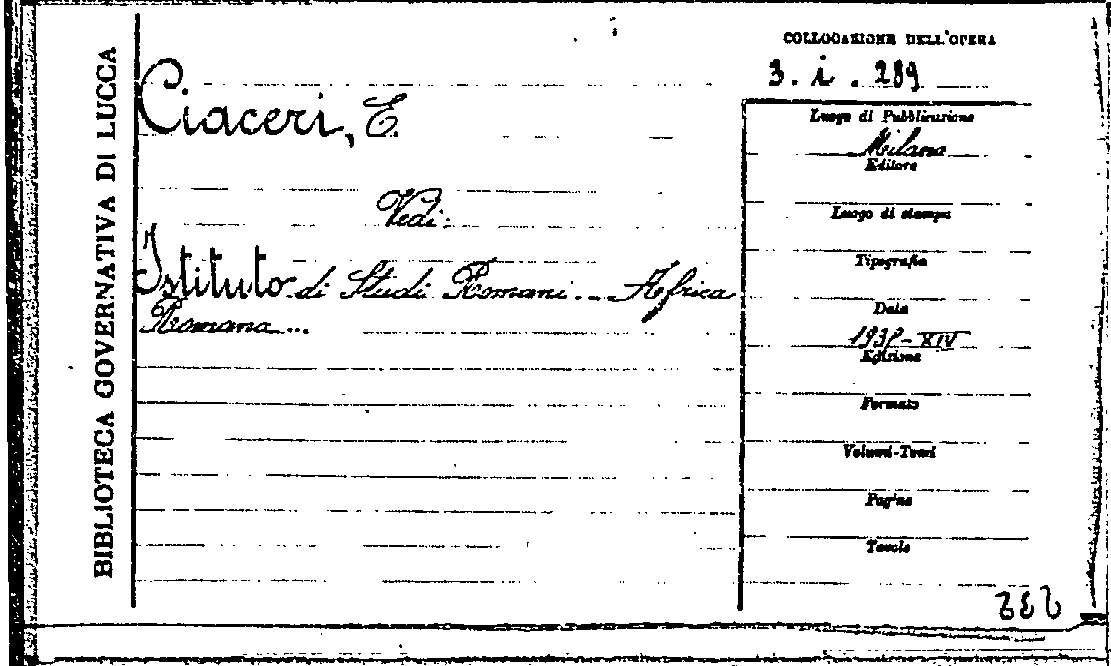 BIBLIOTECA GOVERNATIVA DI LUCCA
Ciaceri, E.
Vedi:
Istituto di Studi Romani... Africa
Romana...
COLLOCAZIONE DELL'OPERA
3. i. 289
Luogo di Pubblicazione
Milano
Editore
Luogo di stampa
Tipografia
Data
XIV
Edizione
Formato
Volumi-Tomi
Pagine
Tavole